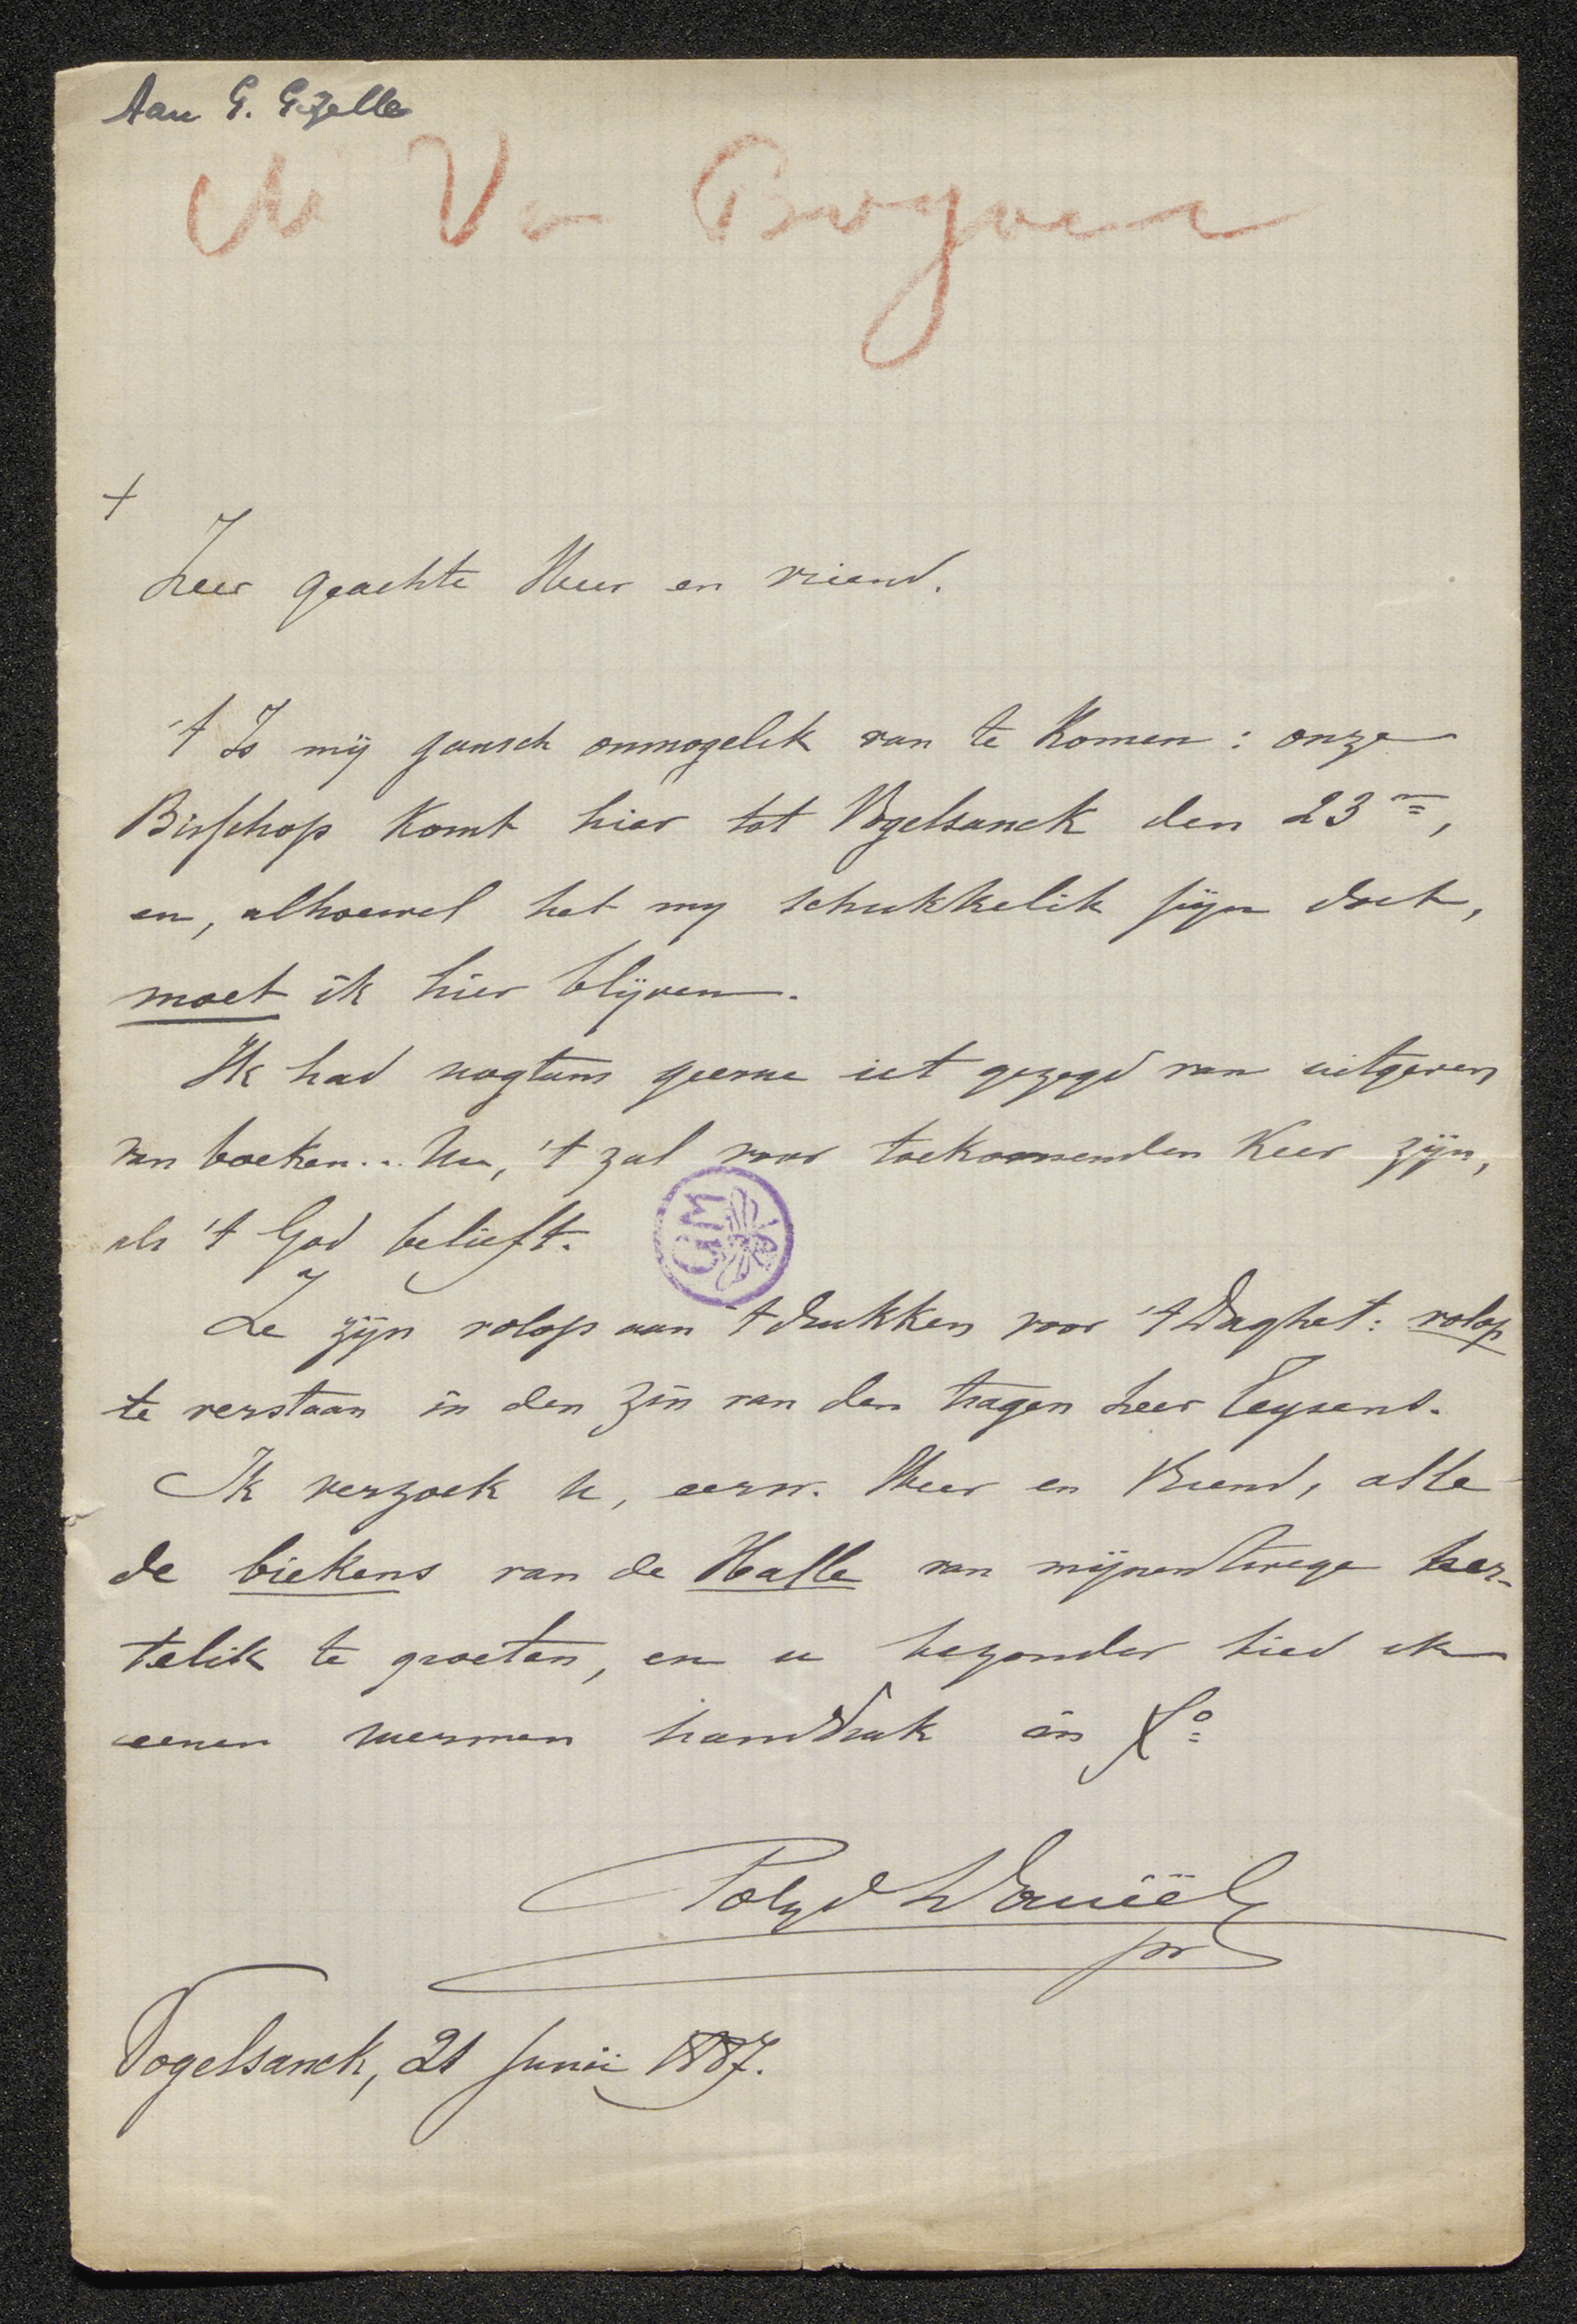 Aan G. Gezelle
M Van
+
Zeer geachte Heer en vriend.
't Is mij gansch onmogelik van te komen : onze
Bisschop komt hier tot Vogelsanck den 23en,
en, alhoewel het my schrikkelik pijn doet,
moet ik hier blijven.
Ik had nogtans geerne iet gezegd van uitgeven
van boeken... Nu, 't zal voor toekomenden keer zijn,
als 't God belieft.
GM
Ze zijn volop aan 't drukken voor 't Daghet : volop
te verstaan in den zin van den tragen heer Ceysens.
Ik verzoek u, eerw. Heer en Vriend, alle
de biekens van de Halle van mijnentwege her-
telik te groeten, en u bezonder bied ik
eenen wermen handdruk in Xo
Polyd Daniëls
pr
Vogelsanck, 21 Junii 1887.